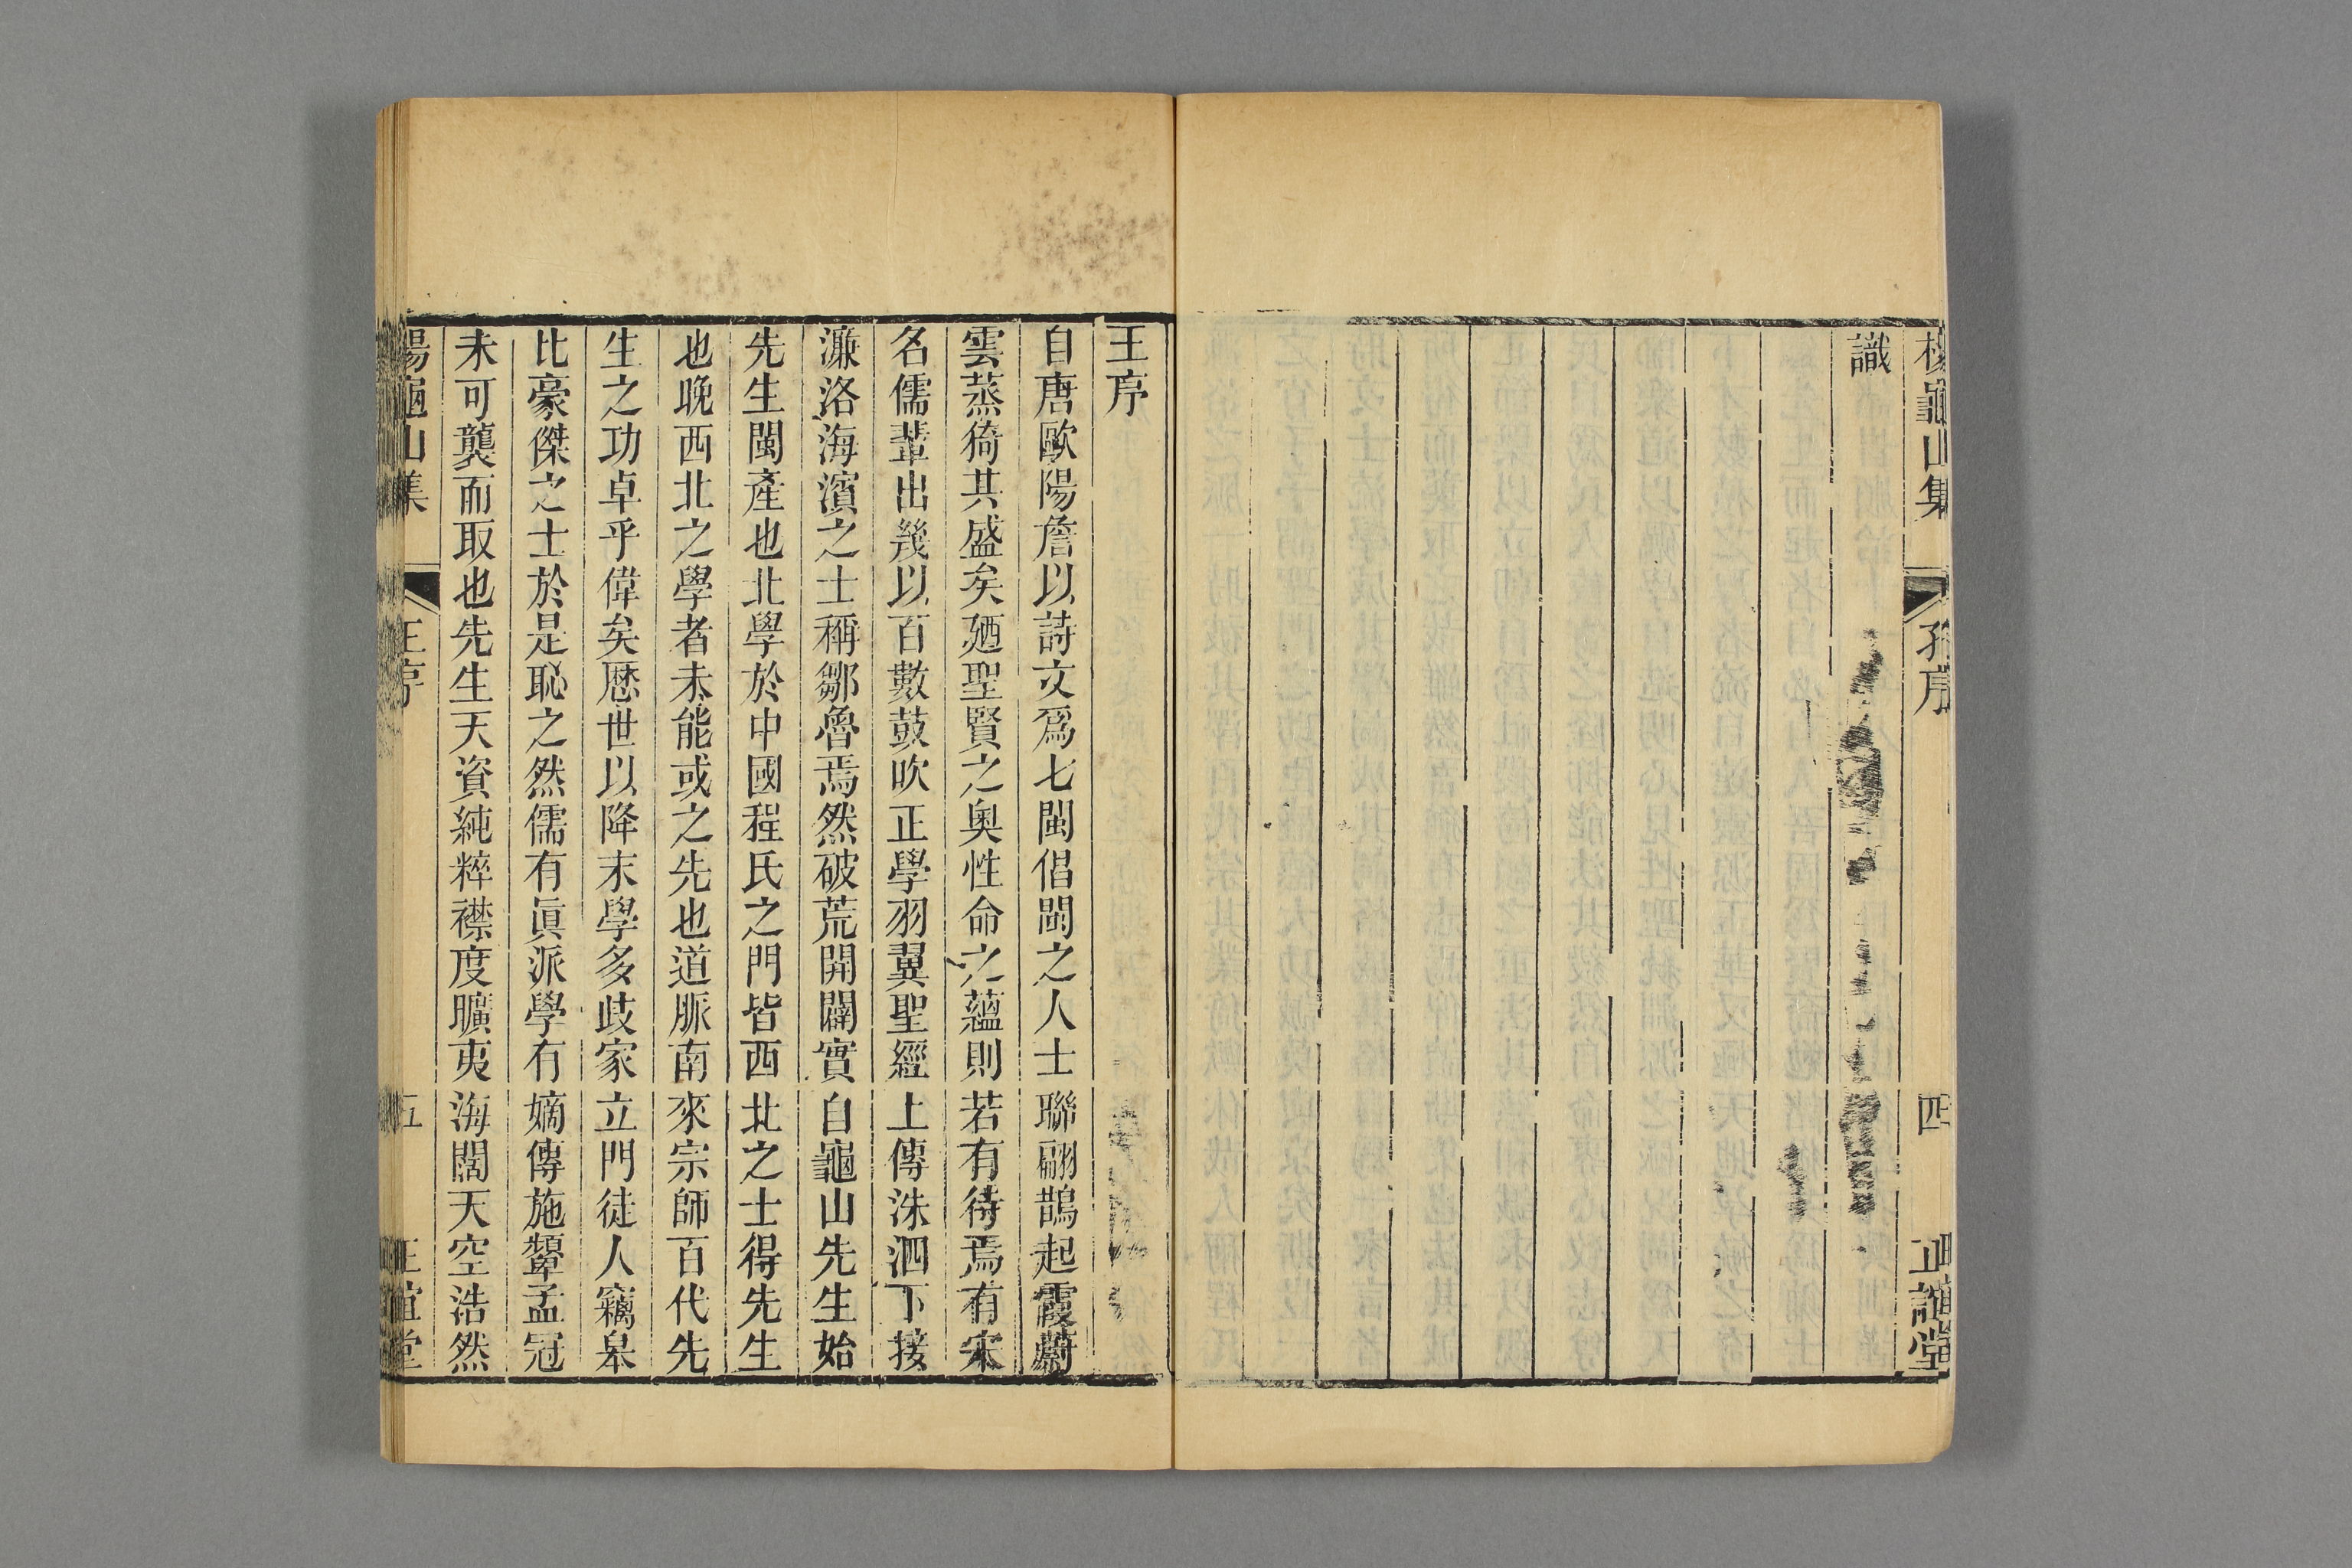 楊龜山集 孔序 四 正誼堂
識
王序
自唐歐陽詹以詩文爲七閩倡閩之人士聯翩鵲起霞蔚
雲蒸猗其盛矣廼聖賢之奥性命之蘊則若有待焉有宋
名儒輩出幾以百數鼓吹正學羽翼聖經上傳洙泗下接
濂洛海濱之士稱鄒魯焉然破荒開闢實自龜山先生始
先生閩產也北學於中國程氏之門皆西北之士得先生
也晚西北之學者未能或之先也道脈南來宗師百代先
生之功卓乎偉矣厯世以降末學多歧家立門徒人竊皋
比豪傑之士於是恥之然儒有眞派學有嫡傳施顰孟冠
未可襲而取也先生天資純粹襟度曠夷海闊天空浩然
楊龜山集 王序 五 正誼堂